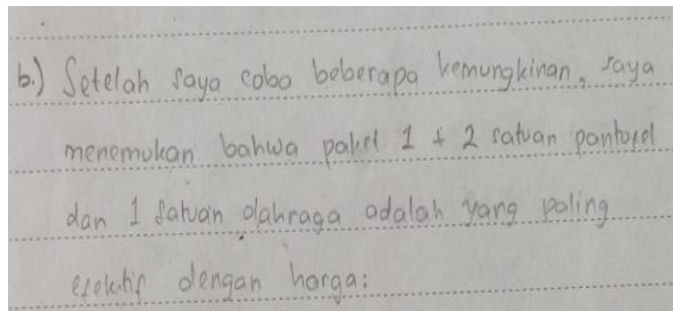 b.) Setelah saya coba beberapa kemungkinan, saya
menemukan bahwa paket 1 + 2 satuan pantofel
dan 1 satuan olahraga adalah yang paling
efektif dengan harga: